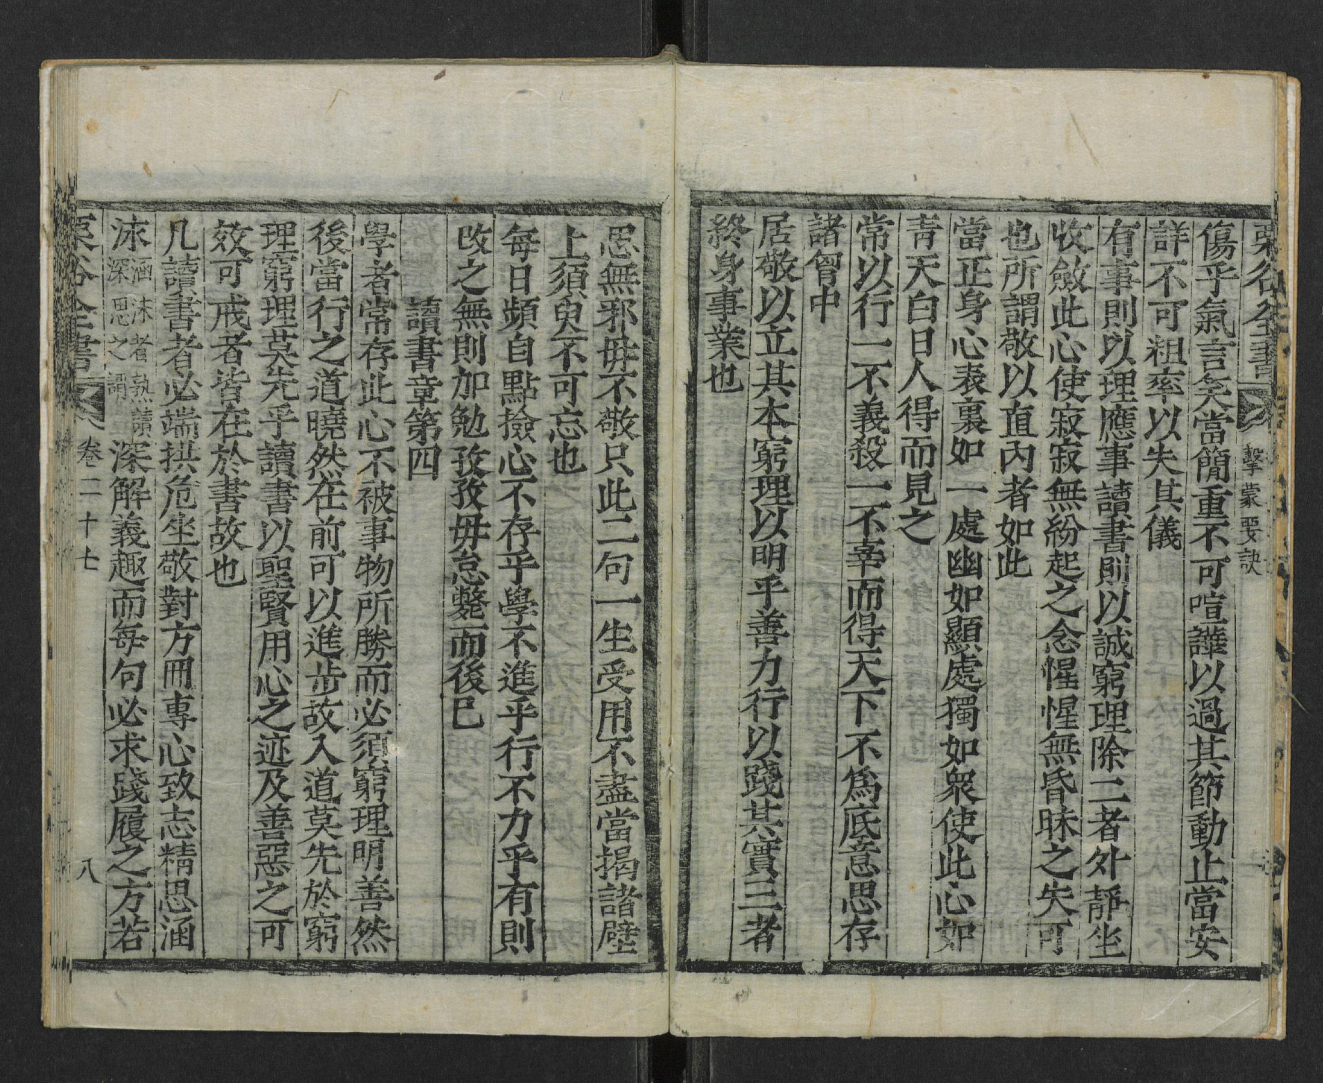 栗谷全書
擊蒙要訣
傷乎氣言笑當簡重不可喧譁以過其節動止當安
詳不可粗率以失其儀
有事則以理應事讀書則以誠窮理除二者外靜坐
收斂此心使寂寂無紛起之念惺惺無昏昧之失可
也所謂敬以直內者如此
當正身心表裏如一處幽如顯處獨如衆使此心如
青天白日人得而見之
常以行一不義殺一不辜而得天下不爲底意思存
諸胷中
居敬以立其本窮理以明乎善力行以踐其實三者
終身事業也
思無邪毋不敬只此二句一生受用不盡當揭諸壁
上須臾不可忘也
每日頻自點撿心不存乎學不進乎行不力乎有則
改之無則加勉孜孜毋怠斃而後已
讀書章第四
學者常存此心不被事物所勝而必須窮理明善然
後當行之道曉然在前可以進步故入道莫先於窮
理窮理莫先乎讀書以聖賢用心之迹及善惡之可
效可戒者皆在於書故也
凡讀書者必端拱危坐敬對方冊專心致志精思涵
泳涵泳者熟讀深思之謂深解義趣而每句必求踐履之方若
栗谷全書
卷二十七
八